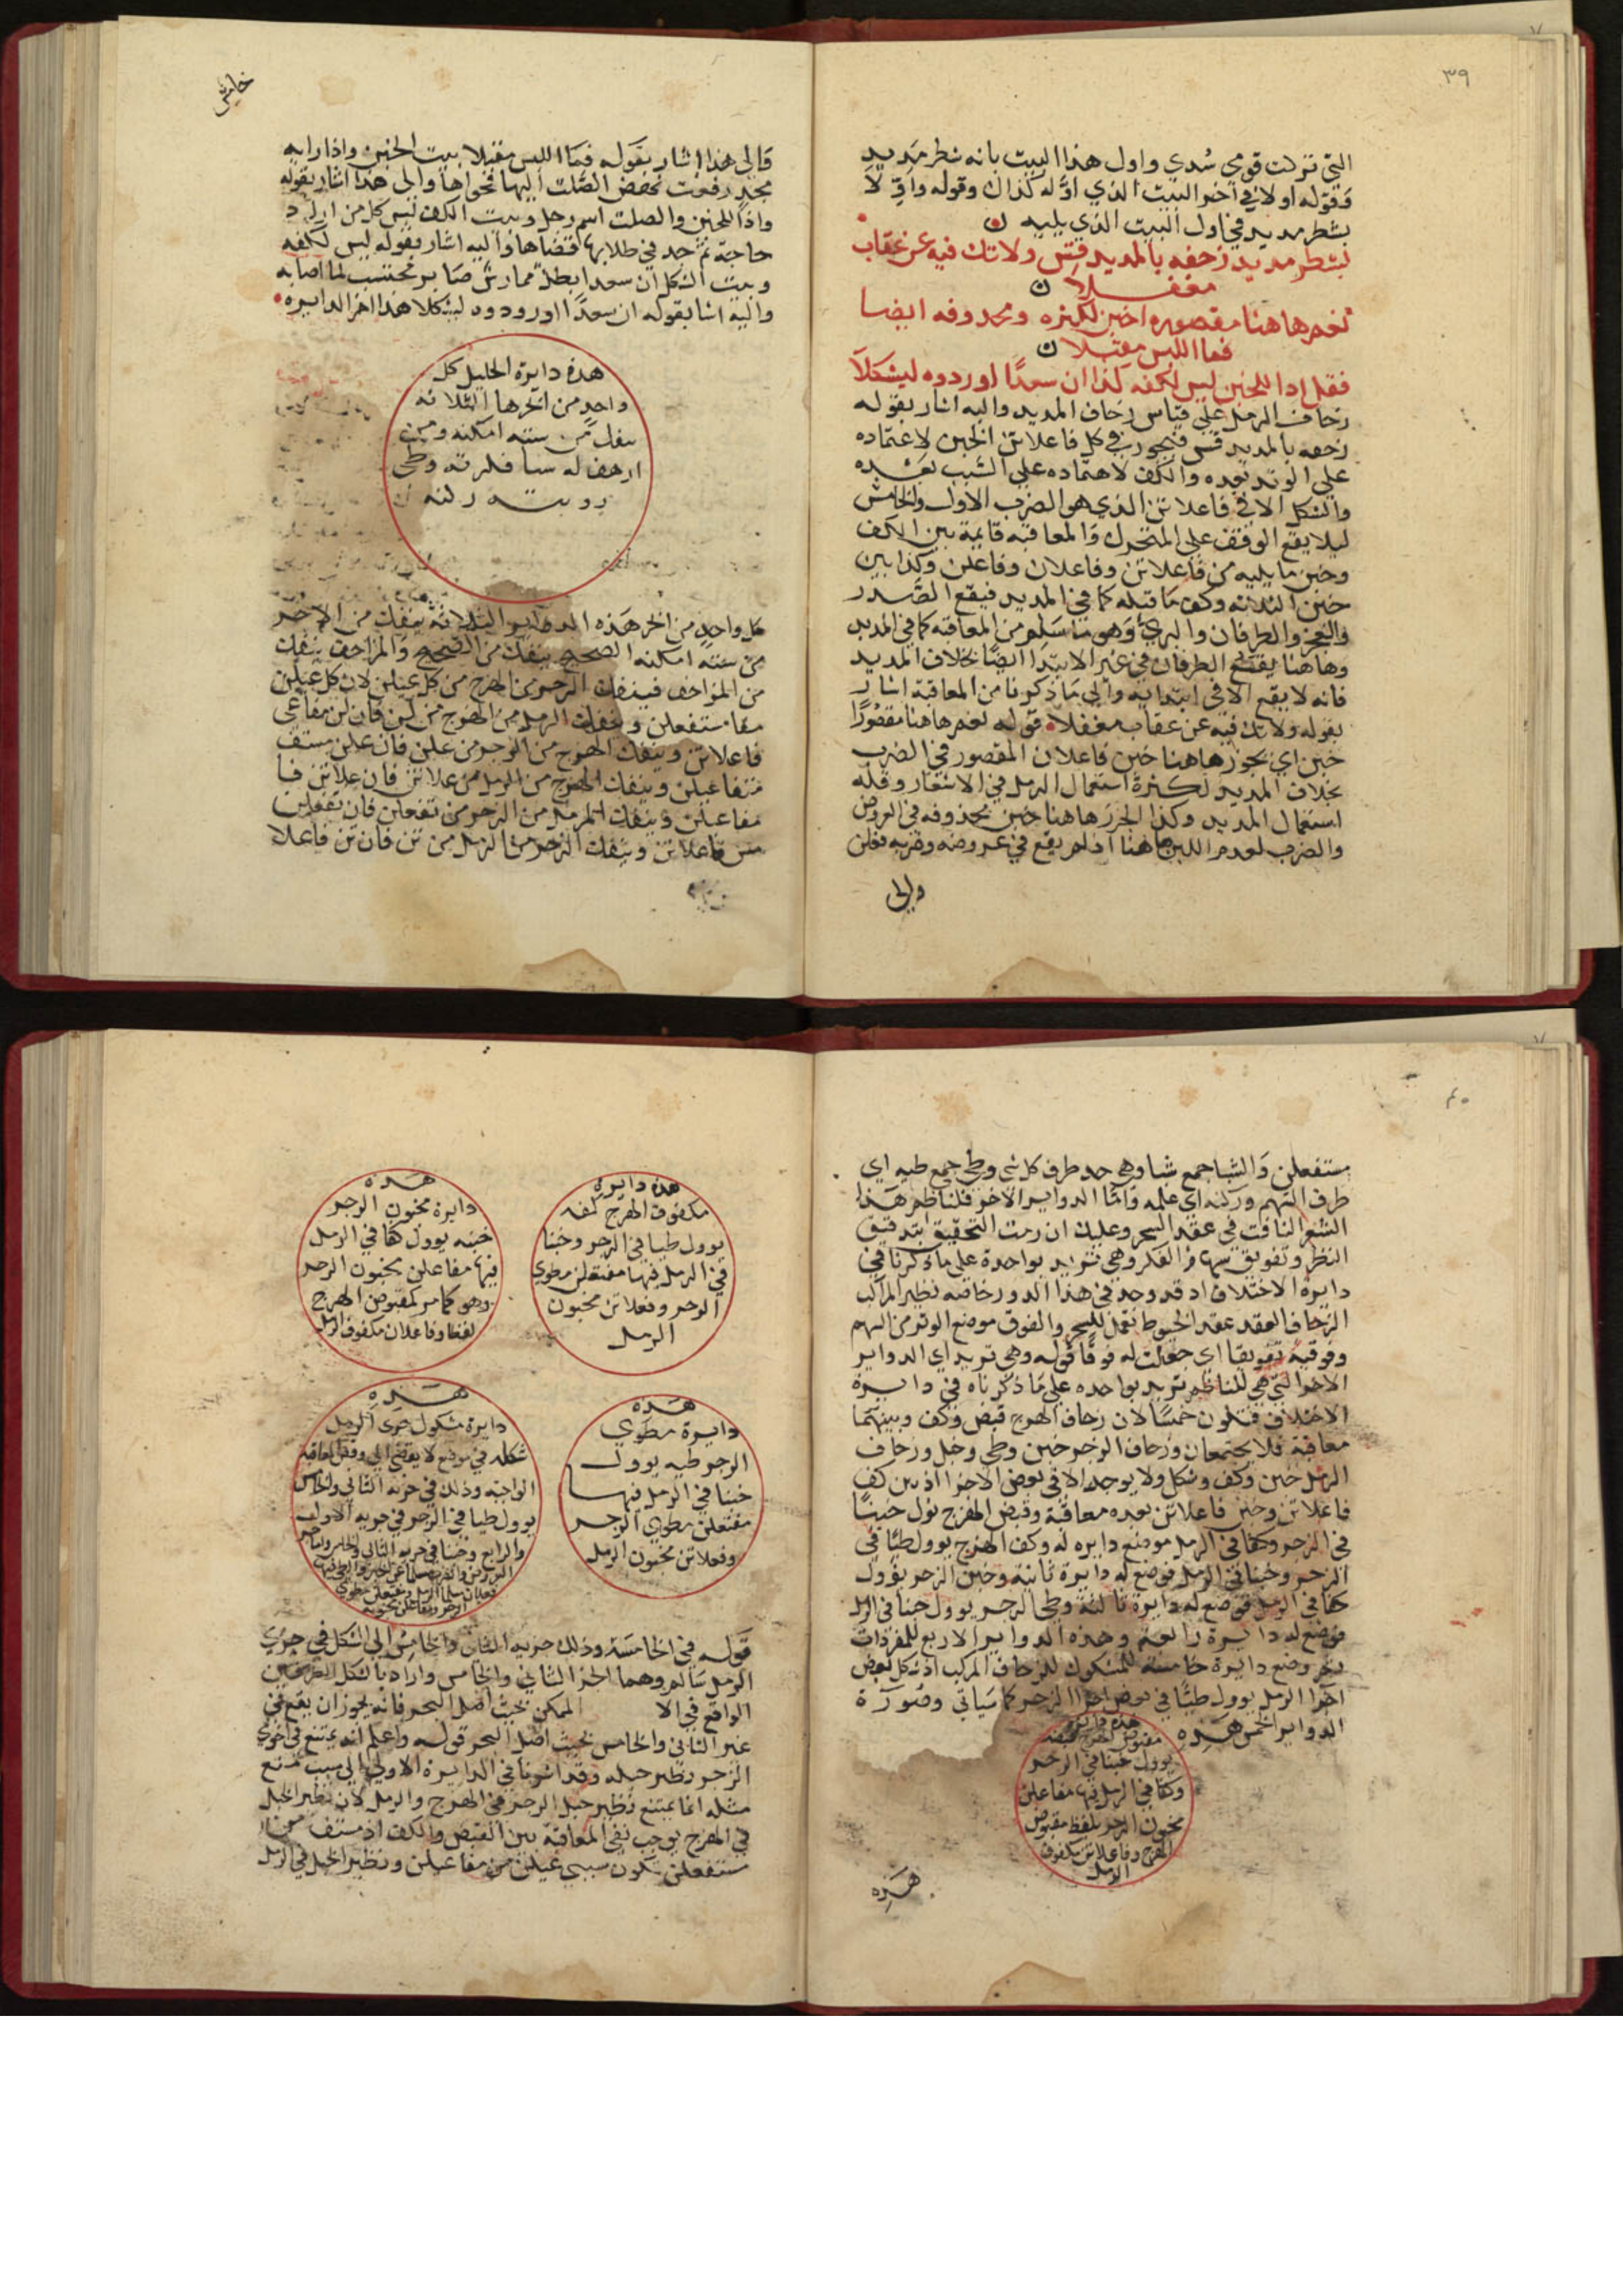 ٣٩
التي تركت قومي سدي واول هذا البيت بانه شطر مديد
فقوله اولا في اخر البيت الذي اوله كذاك وقوله وافي لا
بشطر مديد في اول البيت الذي يليه ن
لشطر مديد زحفه بالمديد قس ولا تك فيه عن عقاب
مغفلا ن
نعم هاهنا مقصوره اخبن لكثره ومحذوفه ايضا
فما اللبس مقبلا ن
فقل اذا للخبن ليس لكفه كذا ان سعدا اوردوه ليشكلا
زحاف الرمل علي قياس زحاف المديد واليه اشار بقوله
زحفه بالمديد قس فيجوز في كل فاعلاتن الخبن لاعتماده
علي الوتد بعده والكف لاعتماده علي السبب بعده
والشكل الا في فاعلاتن الذي هو الضرب الاول والخامس
ليلا يقع الوقف علي المتحرك والمعاقبة قايمة بين الكف
وخبن ما يليه من فاعلاتن وفاعلان وفاعلن وكذا بين
خبن الثلاثه وكف ما قبله كما في المديد فيقع الصدر
والعجز والطرفان والبري وهو ما سلم من المعاقبه كما في المديد
وهاهنا يقع الطرفان في غير الابتدا ايضا بخلاف المديد
فانه لا يقع الا في ابتدايه والي ما ذكرنا من المعاقبة اشار
بقوله ولا تك فيه عن عقاب مغفلا قوله نعم هاهنا مقصورا
خبن اي يجوز هاهنا خبن فاعلان المقصور في الضرب
بخلاف المديد لكثرة استعمال الرمل في الاشعار وقلة
استعمال المديد وكذا الجزر هاهنا خبن محذوفه في العروض
والضرب لعدم اللبس هاهنا اذ لم يقع في عروضه وضربه فعلن
والي
خامس
والي هذا اشار بقوله فما اللبس مقبلا بيت الخبن واذا رايه
مجد رفعت نهض الصلت اليها فحواها والي هذا اشار بقوله
واذا للخبن والصلت اسم رجل وبيت الكف ليس كل من اراد
حاجة ثم جد في طلابها قضاها واليه اشار بقوله ليس لكفه
وبيت الشكل ان سعدا بطل ممارس صابر محتسب لما اصابه
واليه اشار بقوله ان سعدا اوردوه ليشكلا هذا اخر الدايره
هذه دايرة الخليل كل
واحد من ابحرها الثلاثه
ينفك من سته امكنه ومن
كل واحد من ابحر هذه الدواير الثلاثة ينفك من الاخر
من ستة امكنه الصحيح ينفك من الصحيح والمزاحف ينفك
من المزاحف فينفك الرجز من الهزج من كل عيلن لان كل عيلن
مفا مستفعلن وينفك الرمل من الهزج من لن فان لن مفاعي
فاعلاتن وينفك الهزج من الرجز من علن فان علن مستف
مفاعيلن وينفك الهزج من الرمل من علاتن فان علاتن فا
مفاعيلن وينفك الرمل من الرجز من تفعلن فان تفعلن
مس فاعلاتن وينفك الرجز من الرمل من تن فان تن فاعلا
٤٠
مستفعلن والشبا جمع شباة وهي حد طرف كل شي وطي جمع طيه اي
طرف السهم وركنه اي علمه واما الدواير الاخر فللناظم هذا
الشعر النافث في عقد السحر وعليك ان رمت التحقيق بتدقيق
النظر وتفويق سهام الفكر وهي تزيد بواحدة علي ما ذكرنا في
دايرة الاختلاف اذ قد وجد في هذا الدور خاصه نظير المركب
الزحاف العقد عقد الخيوط تعمل للسحر والفوق موضع الوتر من السهم
وفوقته تفويقا اي جعلت له فوقا قوله وهي تزيد اي الدواير
الاخر التي هي للناظم تزيد بواحده علي ما ذكرناه في دايرة
الاختلاف فتكون خمسا لان زحاف الهزج قبض وكف وبينهما
معاقبة فلا يجتمعان وزحاف الرجز خبن وطي وخبل وزحاف
الرمل خبن وكف وشكل ولا يوجد الا في بعض الاجزا اذ بين كف
فاعلاتن وخبن فاعلاتن بعده معاقبة وقبض الهزج يول خبنا
في الرجز وكفا في الرمل موضع دايره له وكف الهزج يوول طيا في
الرجز وخبنا في الرمل فوضع له دايرة ثانية وخبن الرجز يوول
كفا في الرمل فوضع له دايرة ثالثة وطي الرجز يوول خبنا في الرمل
فوضع له دايرة رابعه وهذه الدواير الاربع للمفردات
ثم وضع دايرة خامسة للمشكول للزحاف المركب اذ شكل بعض
اجزا الرمل يوول طيا في بعض اجزا الرجز كما سياتي وصورة
الدواير الخمس هذه
هذه دايرة
مقبوض الهزج قبضه
يوول خبنا في الرجز
وكفا في الرمل فيها مفاعلن
مخبون الرجز بلفظ مقبوض
الهزج وفاعلات مكفوف
الرمل
هذه
هذه دايرة
مكفوف الهزج كفه
يوول طيا في الرجز وخبنا
في الرمل فيها مفتعلن مطوي
الرجز وفعلاتن مخبون
الرمل
هذه
دايرة مخبون الرجز
خبنه يوول كفا في الرمل
فيها مفاعلن مخبون الرجز
وهو كما مر كمقبوض الهزج
لفظا وفاعلات مكفوف الرمل
هذه
دايرة مطوي
الرجز طيه يوول
خبنا في الرمل فيها
مفتعلن مطوي الرجز
وفعلاتن مخبون الرمل
هذه
دايرة مشكول جزي الرمل
شكله في موضع لا يفضي الي رفض المعاقبه
الواجبه وذلك في جزيه الثاني والخامس
يوول طيا في الرجز في جزيه الاول
والرابع وخبنا في جزيه الثاني والخامس
قوله في الخامسة وذلك جزيه الثاني والخامس الي الشكل في جزي
الرمل سالم وهما الجز الثاني والخامس واراد بالشكل الطرفين
الواقع في الا الممكن بحيث اصل البحر فانه يجوز ان يقع في
غير الثاني والخامس بحيث اصل البحر قوله واعلم انه يمتنع في جزي
الرجز نظير خبله وقد اشرنا في الدايرة الاولي الي سبب تمنع
مثله انما يمتنع نظير خبل الرجز في الهزج والرمل لان نظير الخبل
في الهزج يوجب نفي المعاقبة بين القبض والكف اذ مستف من
مستفعلن تكون سببي عيلن من مفاعيلن ونظير الخبل في الرمل